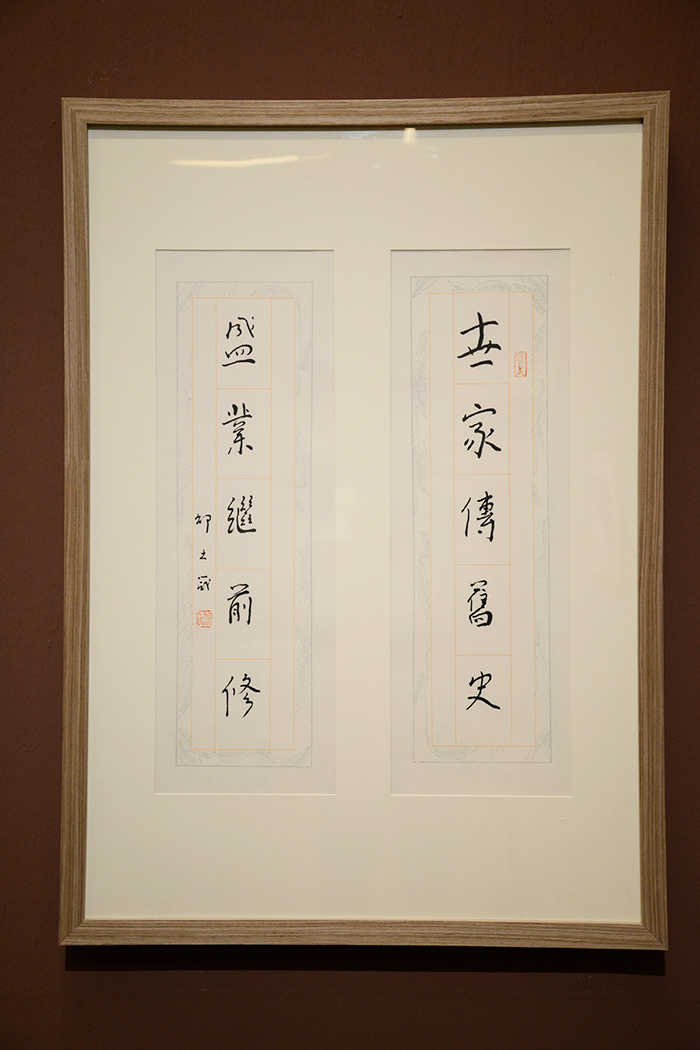 世家傳舊史
盛業繼前修